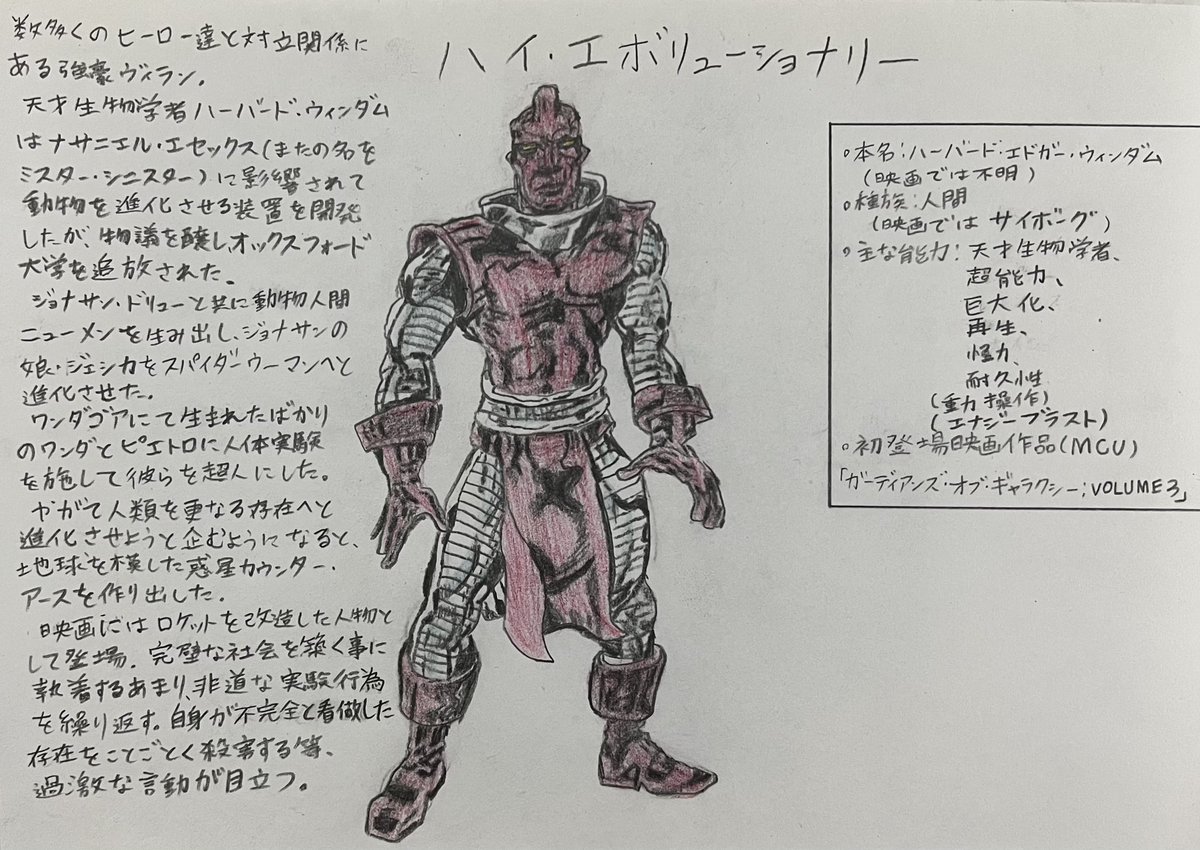 ハイ・エボリューショナリー
数多くのヒーロー達と対立関係に
ある強豪ヴィラン。
天才生物学者ハーバード・ウィンダム
はナサニエル・エセックス(またの名を
ミスター・シニスター)に影響されて
動物を進化させる装置を開発
したが、物議を醸しオックスフォード
大学を追放された。
ジョナサン・ドリューと共に動物人間
ニューメンを生み出し、ジョナサンの
娘・ジェシカをスパイダーウーマンへと
進化させた。
ワンダゴアにて生まれたばかり
のワンダとピエトロに人体実験
を施して彼らを超人にした。
やがて人類を更なる存在へと
進化させようと企むようになると、
地球を模した惑星カウンター・
アースを作り出した。
映画にはロケットを改造した人物と
して登場。完璧な社会を築く事に
執着するあまり、非道な実験行為
を繰り返す。自身が不完全と看做した
存在をことごとく殺害する等、
過激な言動が目立つ。
•本名:ハーバード・エドガー・ウィンダム
(映画では不明)
•種族:人間
(映画ではサイボーグ)
•主な能力:天才生物学者、
超能力、
巨大化、
再生、
怪力、
耐久性
(重力操作)
(エナジーブラスト)
•初登場映画作品(MCU)
「ガーディアンズ・オブ・ギャラクシー:VOLUME3」